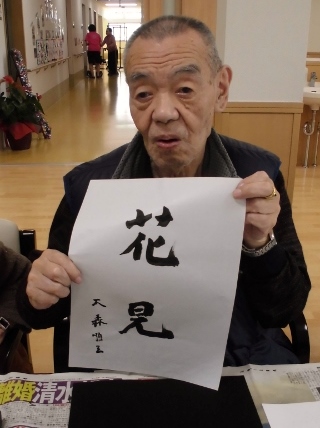 花見
大森順三
離婚清水